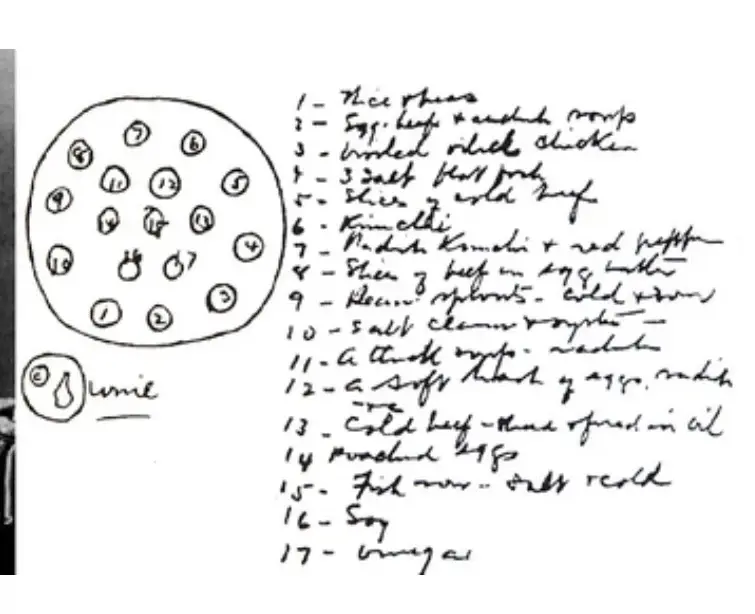 7
8
6
11
12
5
9
14
15
13
10
4
16
17
3
1
2
wine
1 - Rice & beans
2 - Egg, beef & radish soup
3 - broiled whole chicken
4 - 3 salt pork
5 - Slices of cold beef
6 - Kimchi
7 - Radish Kimchi & red pepper
8 - Slices of beef in egg batter
9 - Bean sprouts - cold &
10 - Salt clams & oysters -
11 - A thick soup - radish
12 - A soft of eggs, radish
13 - Cold beef - fried in oil
14 Poached eggs
15 - Fish roe - salt & cold
16 - Soy
17 - Vinegar